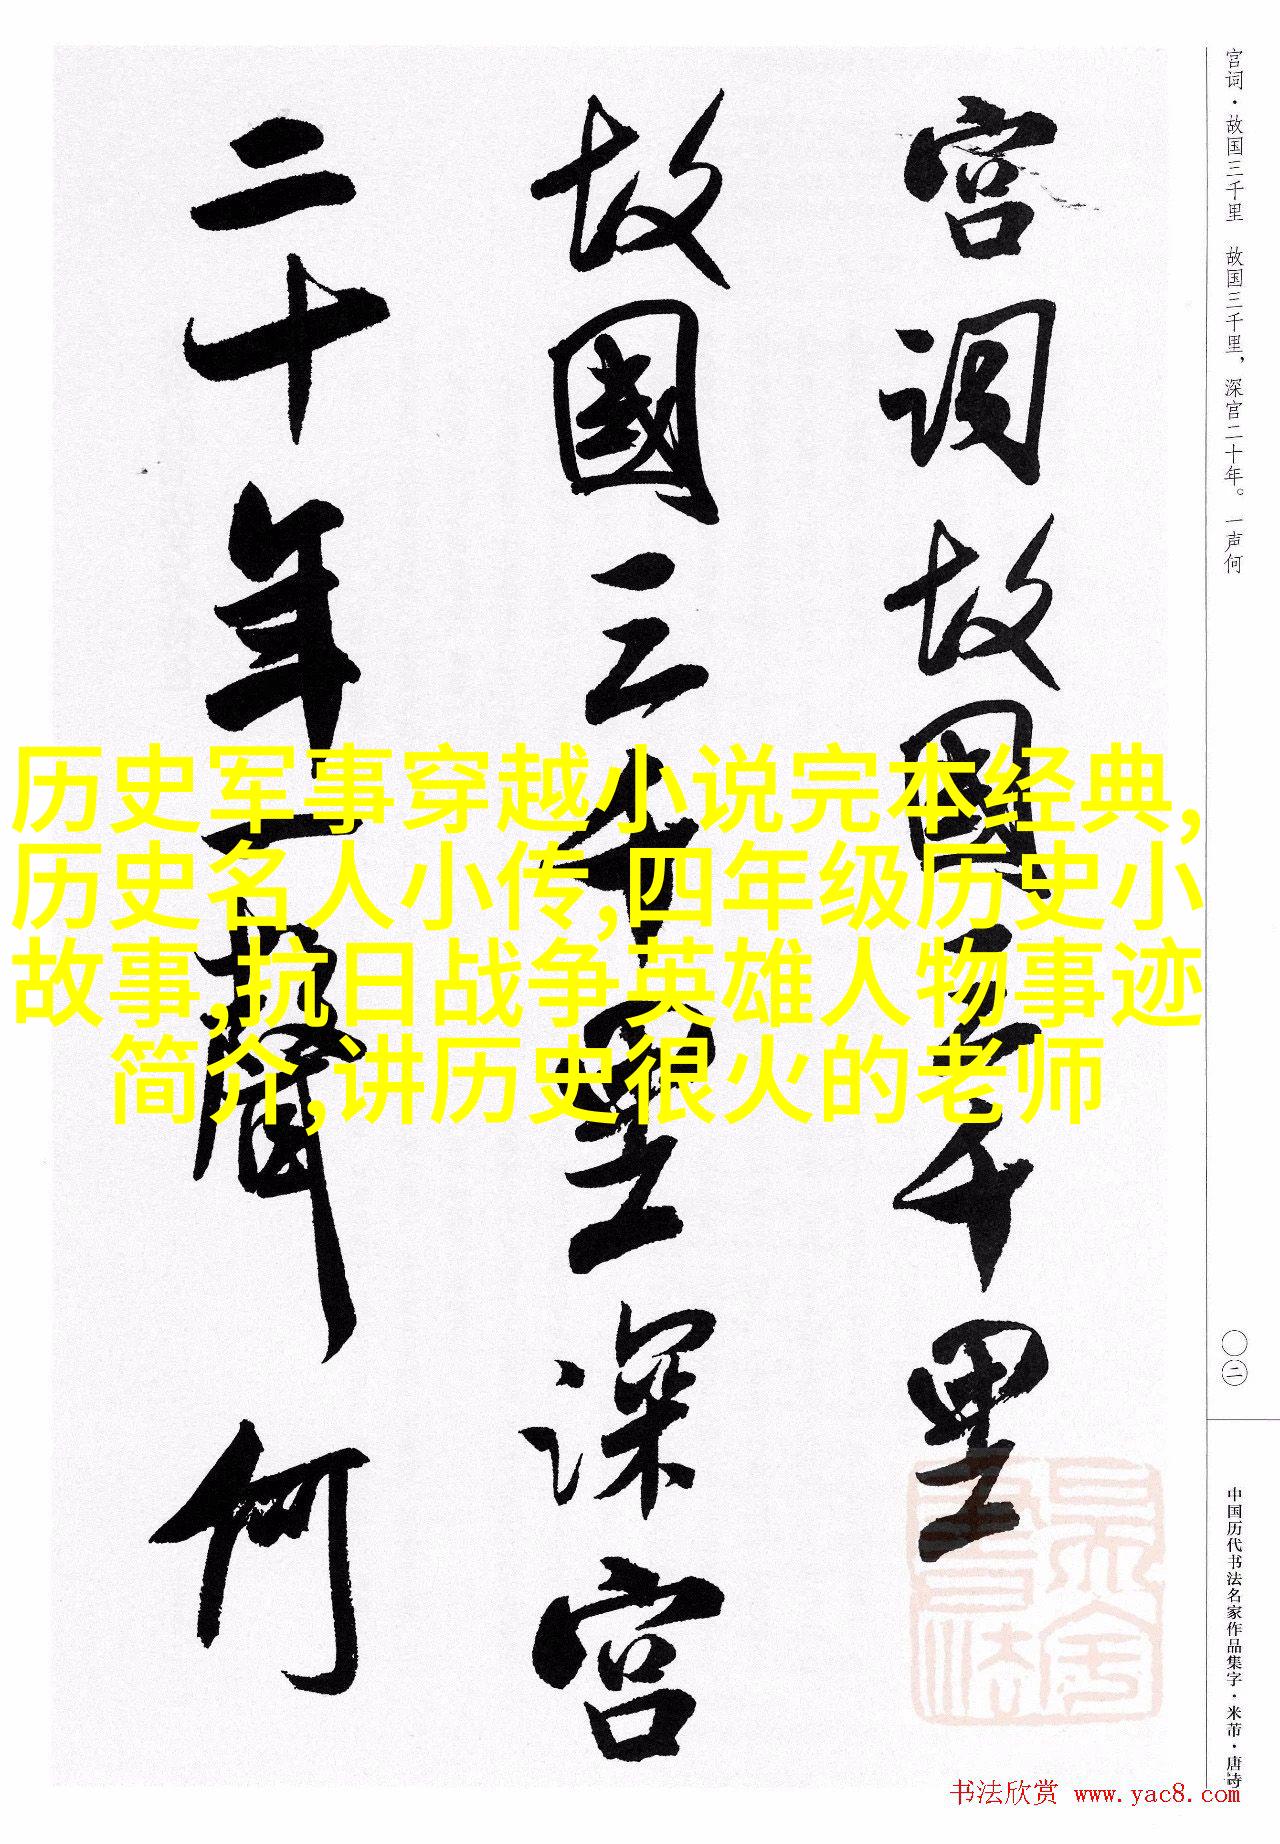 宫词故國三千里
故國三千里深宫
二十年一聲何
宫词·故国三千里 故国三千里,深宫二十年。一声何
〇二
中国历代书法名家作品集字·米芾·唐诗
历史军事穿越小说完本经典,
历史名人小传,四年级历史小
故事,抗日战争英雄人物事迹
简介,讲历史很火的老师
书法欣赏 www.yac8.com